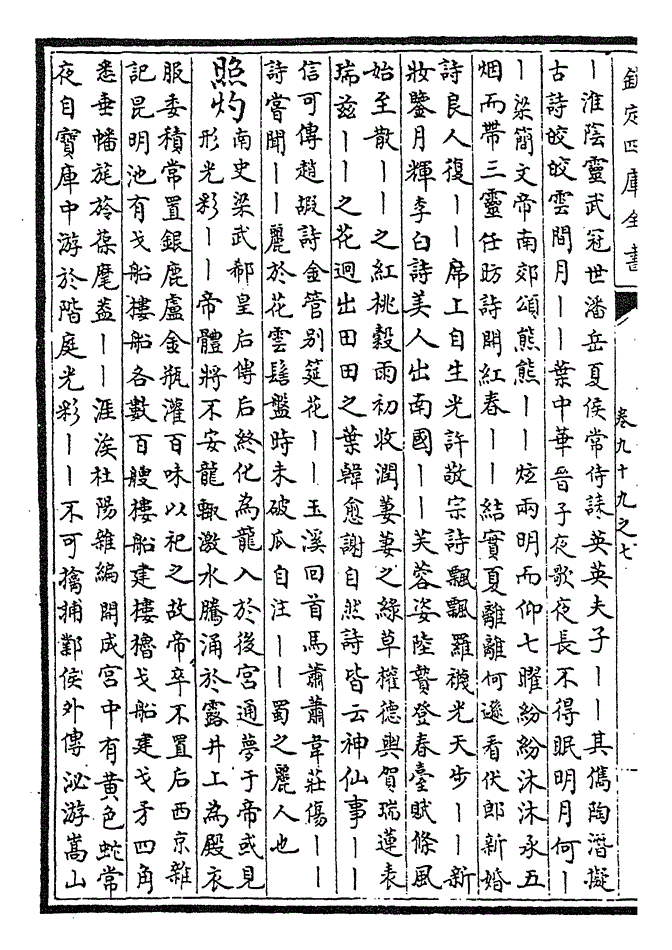 欽定四庫全書
卷九十九之七
丨淮陰靈武冠世潘岳夏侯常侍誄英英夫子丨丨其儁陶潛擬
古詩皎皎雲間月丨丨葉中華晉子夜歌夜長不得眠明月何丨
丨梁簡文帝南郊頌熊熊丨丨炫兩明而仰七曜紛紛沐沐承五
烟而帶三靈任昉詩開紅春丨丨結實夏離離何遜看伏郎新婚
詩良人復丨丨席上自生光許敬宗詩飄飄羅襪光天步丨丨新
妝鑒月輝李白詩美人出南國丨丨芙蓉姿陸贄登春臺賦條風
始至散丨丨之紅桃穀雨初收潤萋萋之綠草權德輿賀瑞蓮表
瑞兹丨丨之花迥出田田之葉韓愈謝自然詩皆云神仙事丨丨
信可傳趙嘏詩金管别筵花丨丨玉溪回首馬蕭蕭韋莊傷丨丨
詩嘗聞丨丨麗於花雲髻盤時未破瓜自注丨丨蜀之麗人也
照灼
南史梁武郗皇后傳后終化為龍入於後宮通夢于帝或見
形光彩丨丨帝體將不安龍輒激水騰涌於露井上為殿衣
服委積常置銀鹿盧金瓶灌百味以祀之故帝卒不置后西京雜
記昆明池有戈船樓船各數百艘樓船建樓櫓戈船建戈矛四角
悉垂幡旄旍葆麾蓋丨丨涯涘杜陽雜編開成宮中有黄色蛇常
夜自寶庫中游於階庭光彩丨丨不可擒捕鄴侯外傳泌游嵩山